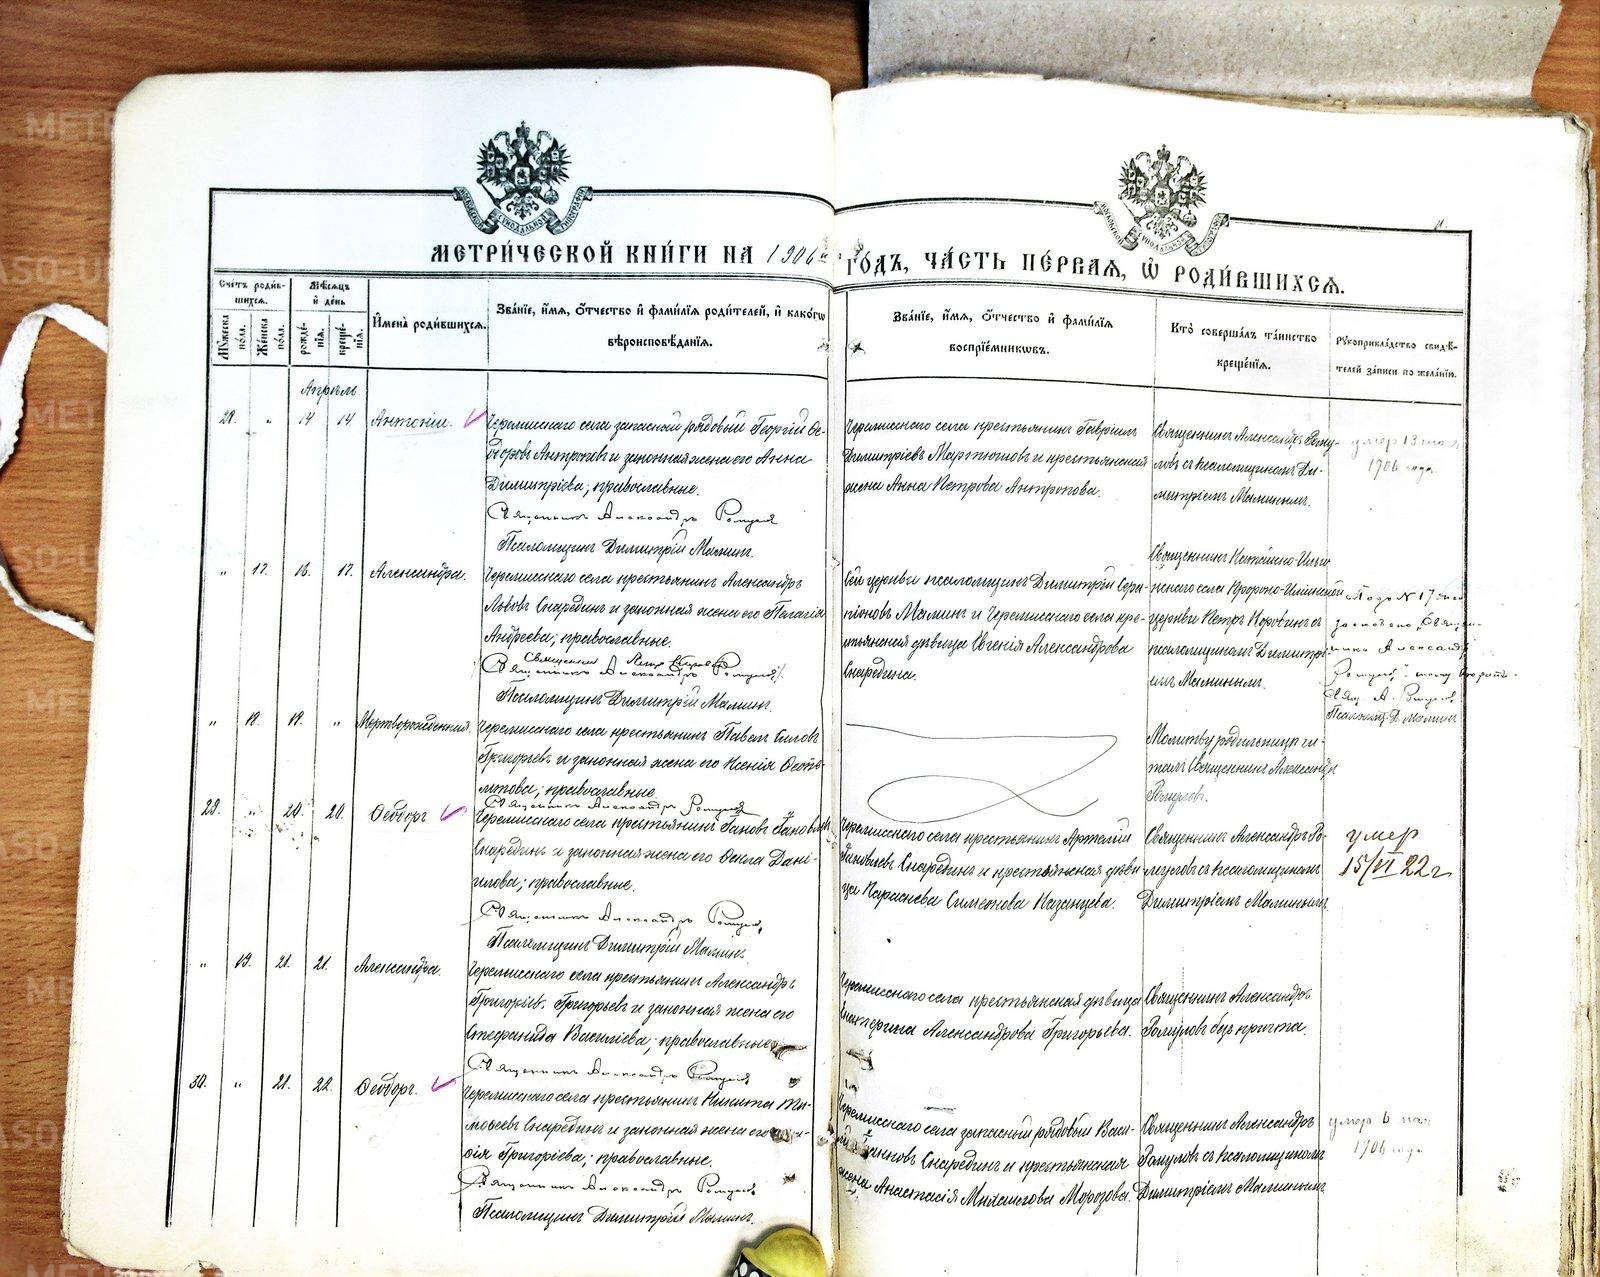 МЕТРИ́ЧЕСКОЙ КНИ́ГИ НА 1906й ГОДЪ, ЧА́СТЬ ПЕ́РВАЯ, Ѡ҆ РОДИ́ВШИХСЯ.
Сче́тъ роди́в-
шихся.
Мѣ́сяцъ
и҆ де́нь
Му́жеска по́ла.
Же́нска по́ла.
рожде́-
нїя.
креще́-
нїя.
И҆мена̀ роди́вшихся.
Зва́нїе, и҆́мя, о҆́тчество и҆ фами́лїя роди́телей, и҆ како́гѡ
вѣроисповѣ́данїя.
Зва́нїе, и҆́мя, о҆́тчество и҆ фами́лїя
воспрїе́мниковъ.
Кто̀ соверша́лъ та́инство
креще́нїя.
Рꙋкоприкла́дство свидѣ́-
телей за́писи по жела́нїю.
Апрѣль.
28. " 14 14 Антоній.
Черемисскаго села запасный рядовой Георгій Ѳе-
доровъ Антроповъ и законная жена его Анна
Димитріева; православные.
Священникъ Александръ Ромуловъ
Псаломщикъ Димитрій Маминъ.
Черемисскаго села крестьянинъ Гавріилъ
Димитріевъ Мартюшовъ и крестьянская
жена Анна Петрова Антропова.
Священникъ Александръ Рому-
ловъ съ псаломщикомъ Ди-
митріемъ Маминымъ.
умер 13
1906 года
" 17. 16. 17. Александра.
Черемисскаго села крестьянинъ Александръ
Львовъ Снарединъ и законная жена его Пелагія
Андреева; православные.
Священникъ Петръ Коровинъ
Священникъ Александръ Ромуловъ
Псаломщикъ Димитрій Маминъ.
Сей церкви псаломщикъ Димитрій Сера-
піоновъ Маминъ и Черемисскаго села кре-
стьянская дѣвица Евгенія Александрова
Снаредина.
Священникъ
села
церкви Петръ Коровинъ съ
псаломщикомъ Димитрі-
емъ Маминымъ.
Подъ № 17
Александръ
Ромуловъ
Свящ. А. Ромуловъ
Псаломщ. Д. Маминъ
" 18. 19. " Мертворожденная.
Черемисскаго села крестьянинъ Павелъ
Григорьевъ и законная жена его Ксенія
православные.
Священникъ Александръ Ромуловъ
Молитву родильницѣ чи-
талъ Священникъ Александръ
Ромуловъ.
29. " 20. 20. Ѳеодоръ
Черемисскаго села крестьянинъ Іаковъ Іаковлевъ
Снарединъ и законная жена его Ѳекла Дані-
илова; православные.
Священникъ Александръ Ромуловъ
Псаломщикъ Димитрій Маминъ.
Черемисскаго села крестьянинъ Артемій
Іаковлевъ Снарединъ и крестьянская дѣви-
ца Параскева Симеонова Казанцева.
Священникъ Александръ Ро-
муловъ съ псаломщикомъ
Димитріемъ Маминымъ.
умер
15/VI 22 г
" 19. 21. 21. Александра.
Черемисскаго села крестьянинъ Александръ
Григорьевъ и законная жена его
Стефанида Василіева; православные.
Священникъ Александръ Ромуловъ
Черемисскаго села крестьянская дѣвица
Екатерина Александрова Григорьева.
Священникъ Александръ
Ромуловъ безъ причта.
30. " 21. 22. Ѳеодоръ.
Черемисскаго села крестьянинъ Никита Ти-
моѳеевъ Снарединъ и законная жена его
Григоріева; православные.
Священникъ Александръ Ромуловъ
Псаломщикъ Димитрій Маминъ.
Черемисскаго села запасный рядовой Васи-
лій Снарединъ и крестьянская
жена Анастасія Михаилова Морозова.
Священникъ Александръ
Ромуловъ съ псаломщикомъ
Димитріемъ Маминымъ.
умер 6 мая
1906 года